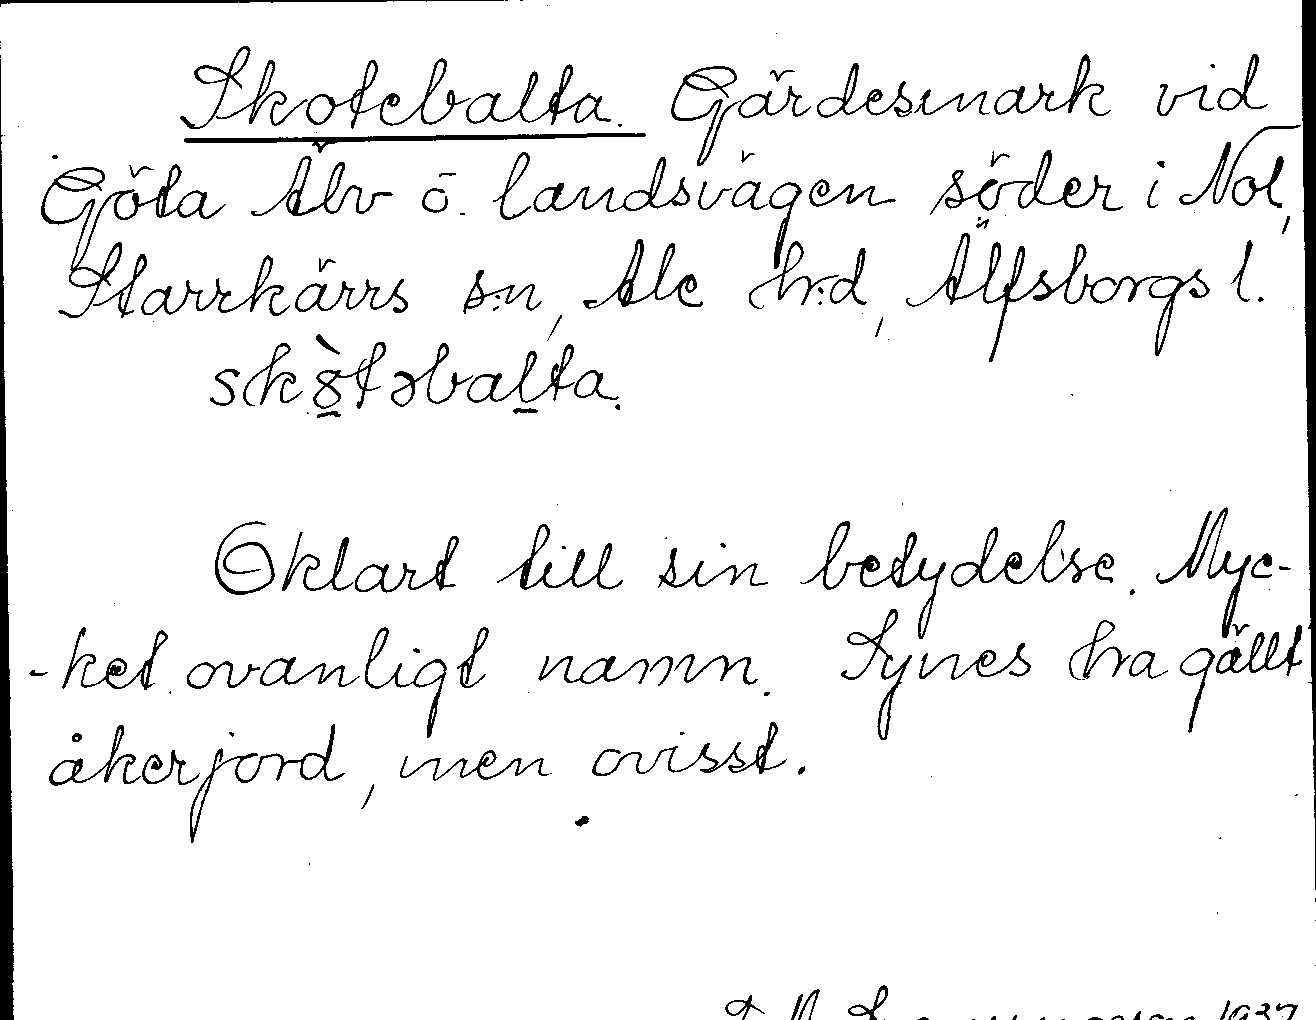 Skotebalta. Gärdesmark vid
Göta Älv ö. landsvägen söder i Nol,
Starrkärrs s:n, Ale h:d, Älfsborgs l.
skò̱təbaḻta.
Oklart till sin betydelse. Myc-
-ket ovanligt namn. Synes ha gällt
åkerjord, men ovisst.
1937